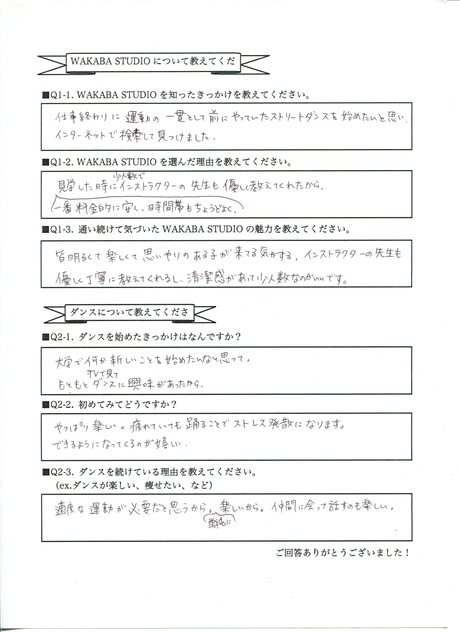 WAKABA STUDIO について教えてくだ
■Q1-1. WAKABA STUDIO を知ったきっかけを教えてください。
仕事終わりに 運動の一貫として前にやっていたストリートダンスを始めたいと思い、
インターネットで検索して見つけました。
■Q1-2. WAKABA STUDIO を選んだ理由を教えてください。
少人数で
見学した時にインストラクターの先生も優しく教えてくれたから。
一番料金的に安く、時間帯もちょうどよく、
■Q1-3. 通い続けて気づいた WAKABA STUDIO の魅力を教えてください。
皆明るくて楽しくて思いやりのある子が来てる気がする。インストラクターの先生も
優しく丁寧に教えてくれるし、清潔感があって少人数なのがいいです。
ダンスについて教えてくださ
■Q2-1. ダンスを始めたきっかけはなんですか？
大学で何か新しいことを始めたいなと思って。
TVで見て
もともとダンスに興味があったから。
■Q2-2. 初めてみてどうですか？
やっぱり楽しい。疲れていても踊ることでストレス発散になります。
できるようになってくるのが嬉しい。
■Q2-3. ダンスを続けている理由を教えてください。
(ex.ダンスが楽しい、痩せたい、など）
適度な運動が必要だと思うから。楽しいから。仲間に会って話すのも楽しい。
ご回答ありがとうございました！